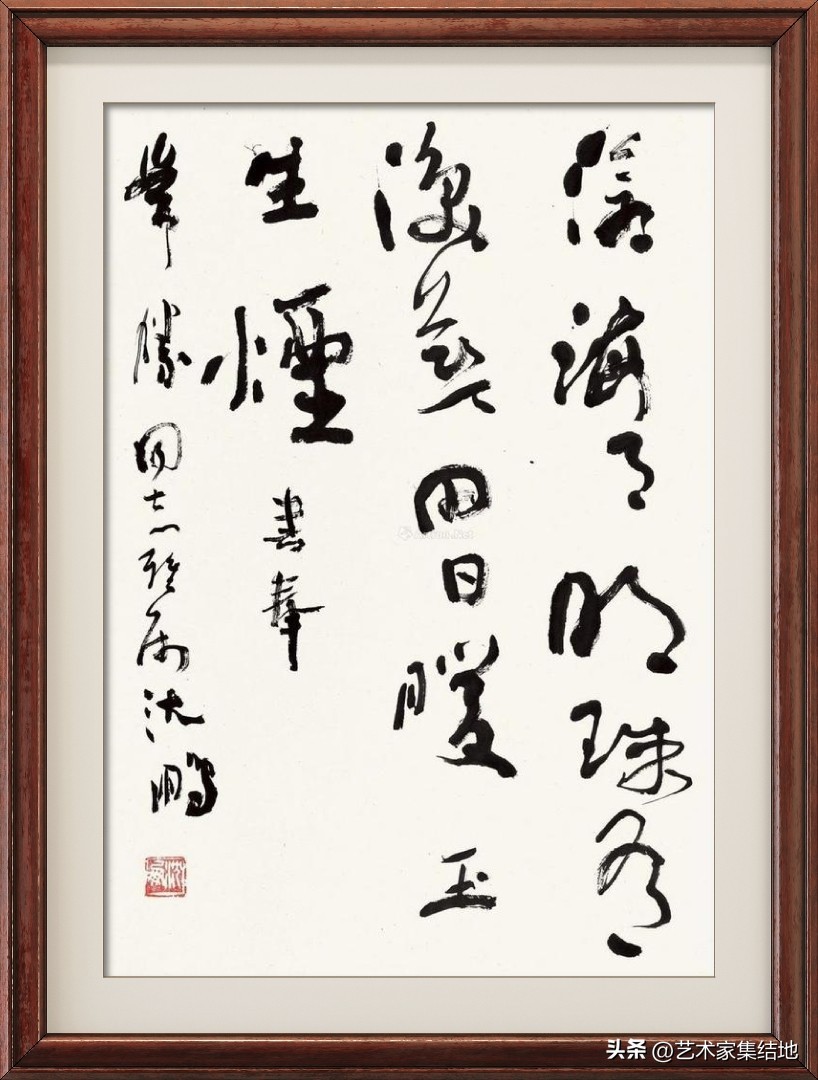 滄海月明珠有
淚藍田日暖玉
生煙 書奉
勝同志雅屬 沈鵬
头条 @艺术家集结地